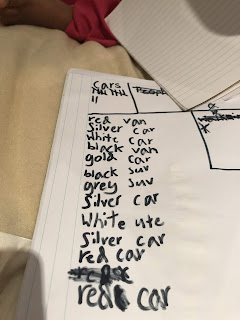 Cars
red van
Silver car
White car
black van
gold car
black suv
grey suv
Silver car
White ute
Silver car
red car
red car